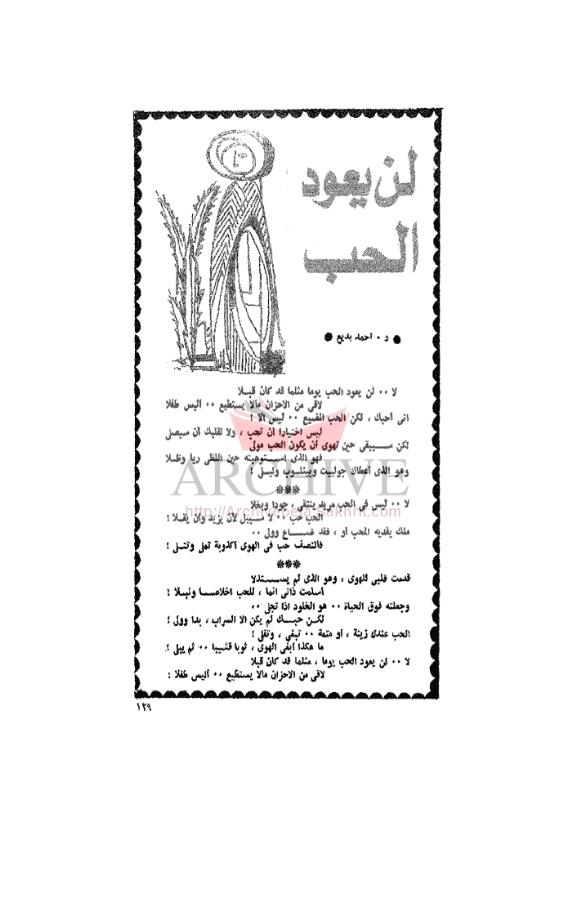 لن يعود
الحب
● د . احمد بديع ●
لا .. لن يعود الحب يوما مثلما قد كان قبلا
لاقى من الاحزان مالا يستطيع .. اليس طفلا
انى أحبك ، لكن الحب الفجيع .. ليس الا !
ليس اختيارا أن تحب ، ولا تقلبك أن سيصلى
لكن سيبقى حين تهوى أن يكون الحب مولى
فهو الذى استوهبته حين اللظى ريا وظلا
وهو الذى أعطاك جولييت وبينلوب وليلى !
***
لا .. ليس فى الحب مريد ينتقى ، جودا وبخلا
الحب حب .. لا سبيل لأن يزيد وأن يقلا !
ملك يفديه المحب أو ، فقد ضاع وولى ..
فالنصف حب فى الهوى أكذوبة تملى وتتلى !
***
قدمت قلبى للهوى ، وهو الذى لم يستذلا
اسلمت ذاتى انما ، للحب اخلاصا ونبلا !
وجعلته فوق الحياة .. هو الخلود اذا تجلى ..
لكن حبك لم يكن الا السراب ، بدا وولى !
الحب عندك زينة ، أو متعة .. تبغى ، وتقلى !
ما هكذا أبغى الهوى ، ثوبا قشيبا .. ثم يبلى !
لا .. لن يعود الحب يوما ، مثلما قد كان قبلا
لاقى من الاحزان مالا يستطيع .. أليس طفلا !
١٢٩
ARCHIVE
http://Archivebeta.Sakhrit.com